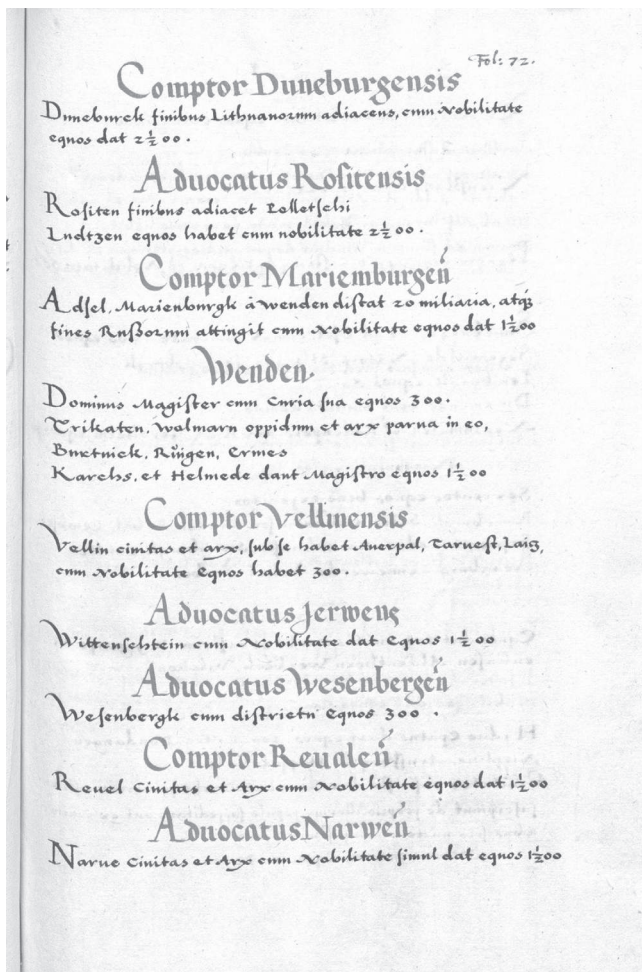 Fol: 72.
Comptor Duneburgensis
Duneburck finibus Lithuanorum adiacens, cum Nobilitate
equos dat 2½00.
Aduocatus Rositensis
Rositen finibus adiacet Polletschi
Ludtzen equos habet cum nobilitate 2½00.
Comptor Mariemburgen̄
Adsel, Marienburgk à Wenden distat 20 miliaria, atq̃
fines Rußorum attingit cum Nobilitate equos dat 1½00
Wenden.
Dominus Magister cum Curia sua equos 300.
Trikaten, Walmarn oppidum et arx parua in eo,
Burtnick, Rüngen, Ermes
Karchs, et Helmede dant Magistro equos 1½00
Comptor Vellinensis
Vellin ciuitas et arx, sub se habet Auerpal, Taruest, Laiz,
cum Nobilitate Equos habet 300.
Aduocatus Jerwens
Wittenschtein cum Nobilitate dat Equos 1½00
Aduocatus Wesenbergen̄
Wesenbergk cum districtu Equos 300.
Comptor Reualen̄
Reuel Ciuitas et Arx cum Nobilitate equos dat 1½00
Aduocatus Narwen̄
Narue Ciuitas et Arx cum Nobilitate simul dat equos 1½00